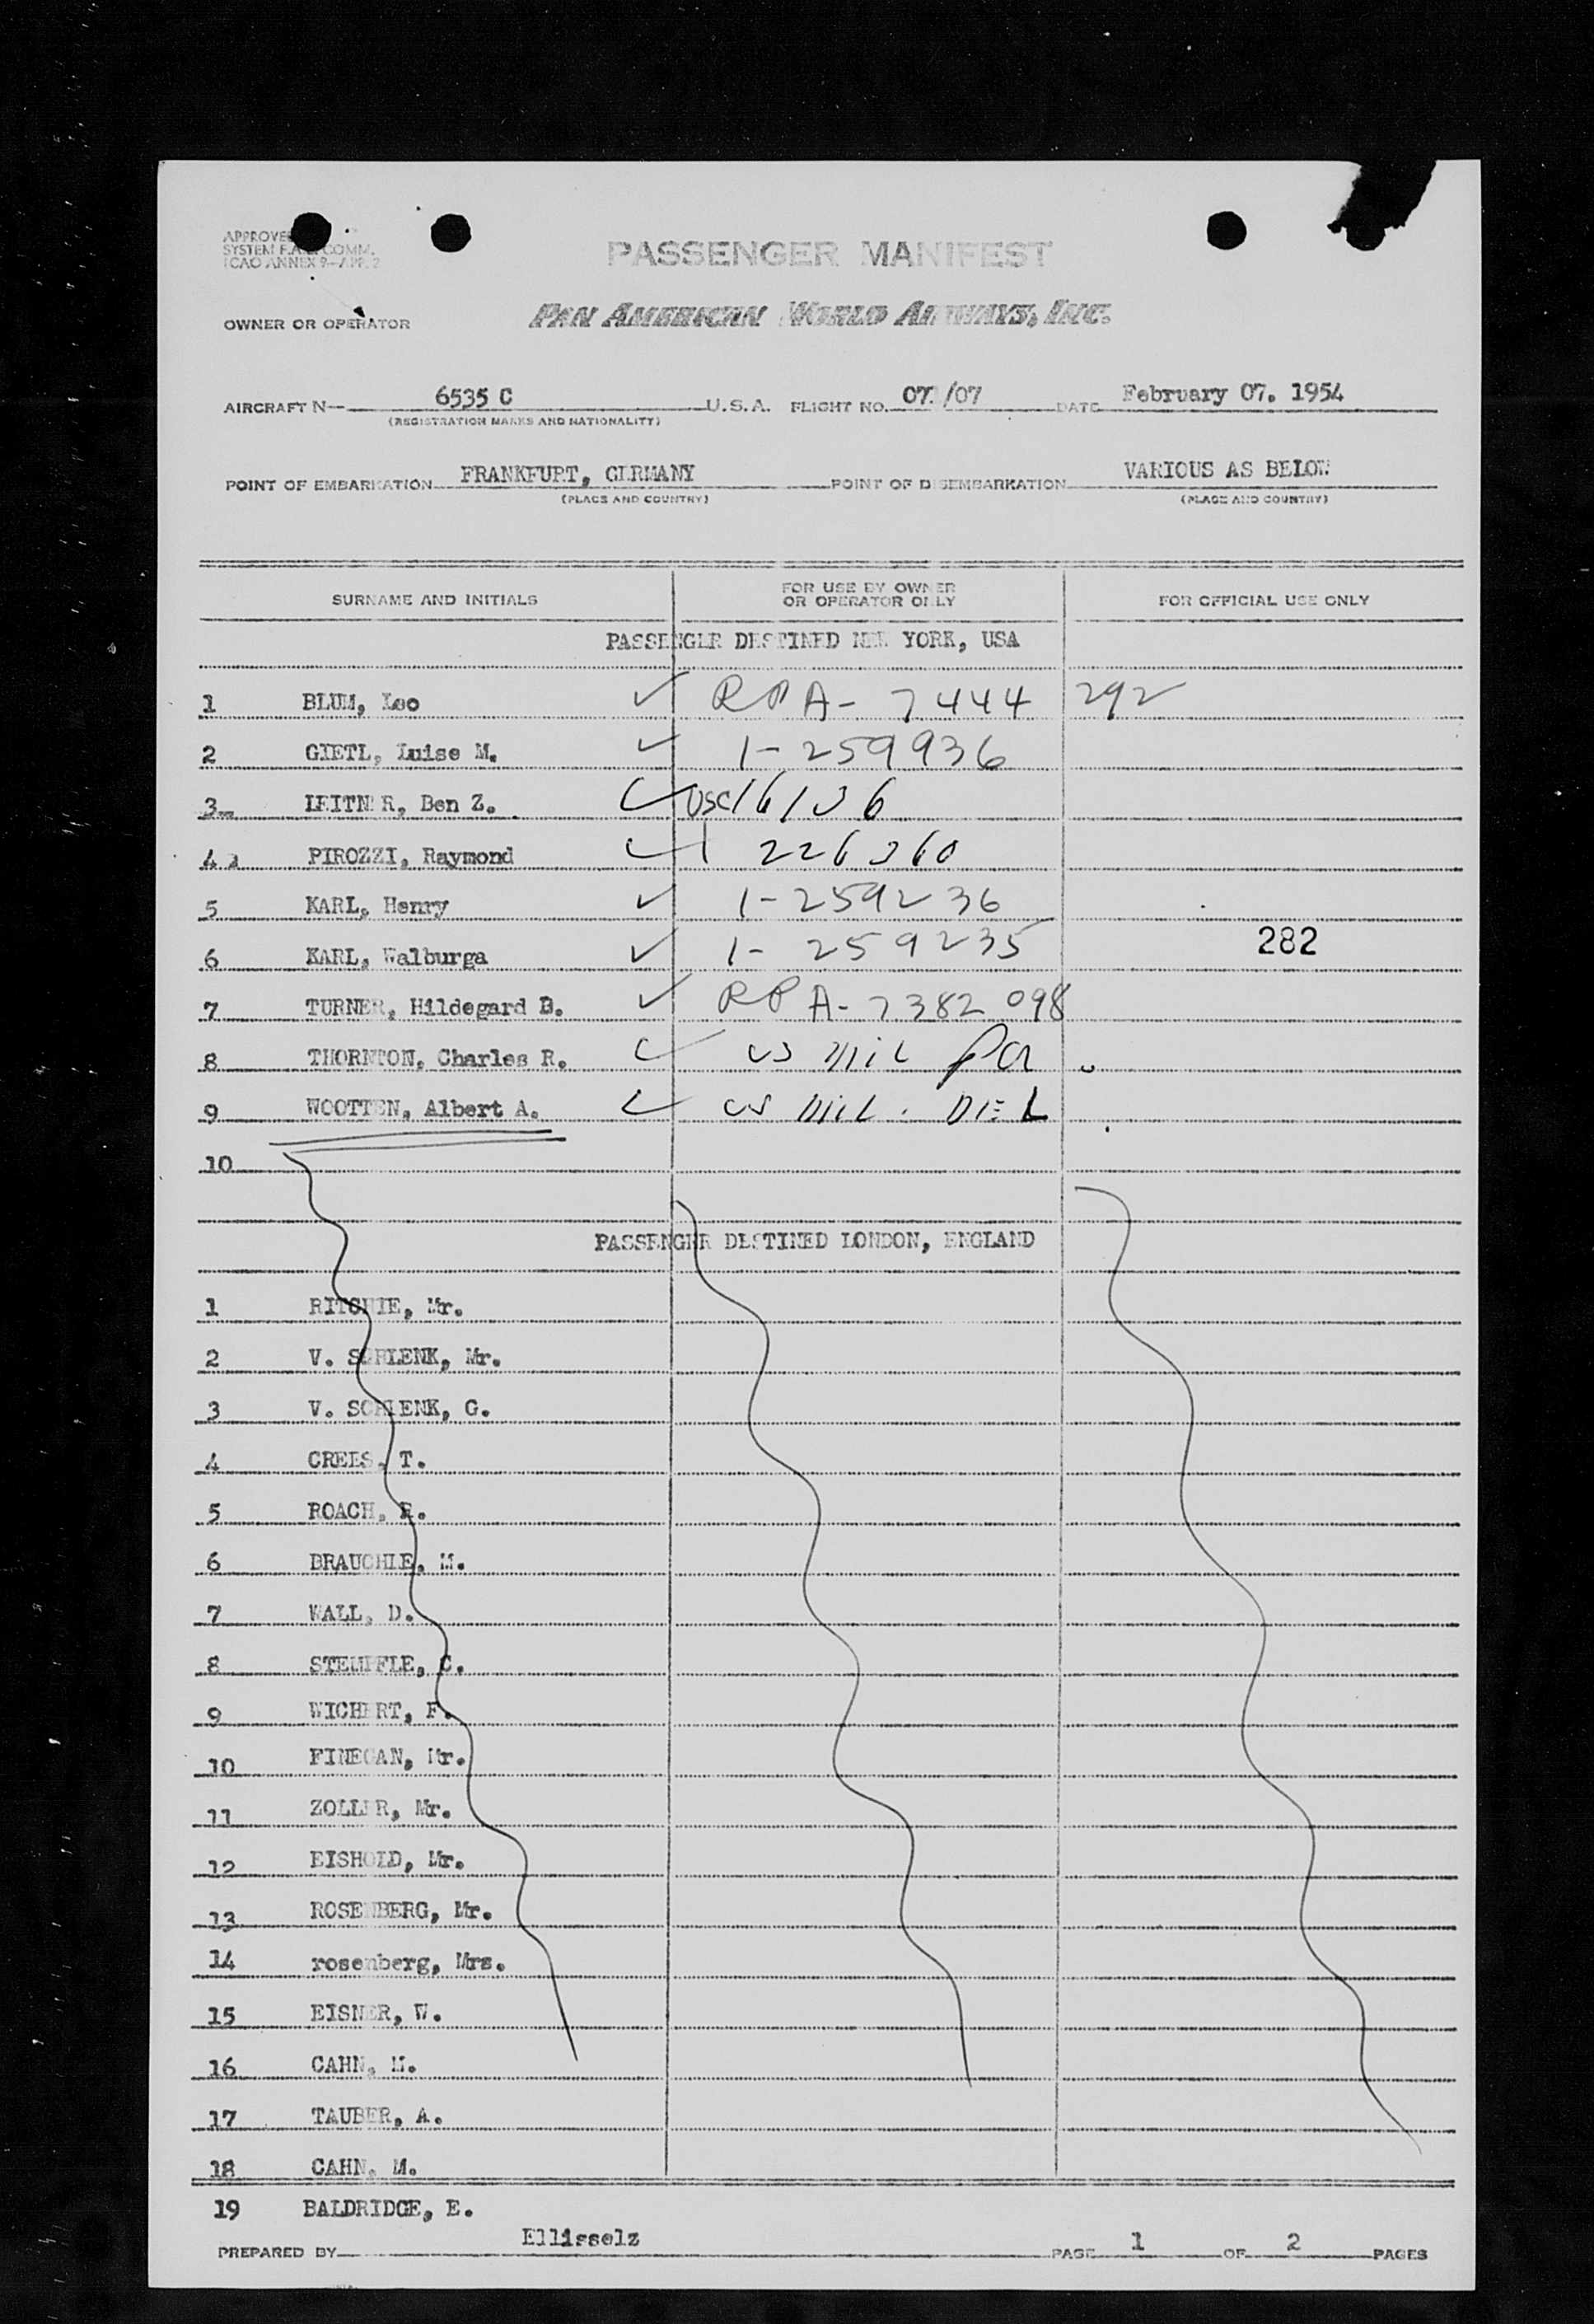 PASSENGER MANIFEST
SYSTEM F.A. COMM.
ICAO ANNEX 9-APP. 2
OWNER OR OPERATOR PAN AMERICAN WORLD AIRWAYS, INC.
AIRCRAFT N— 6535 C U.S.A. FLIGHT NO. 07/07 DATE February 07. 1954
(REGISTRATION MARKS AND NATIONALITY)
POINT OF EMBARKATION FRANKFURT, GERMANY POINT OF DISEMBARKATION VARIOUS AS BELOW
(PLACE AND COUNTRY) (PLACE AND COUNTRY)
SURNAME AND INITIALS FOR USE BY OWNER OR OPERATOR ONLY FOR OFFICIAL USE ONLY
PASSENGER DESTINED NEW YORK, USA
1 BLUM, Leo ✓ RPA- 7444 292
2 GIETL, Luise M. ✓ 1-259936
3 LEITNER, Ben Z. ✓ USC 16136
4 PIROZZI, Raymond ✓ 1 226360
5 KARL, Henry ✓ 1-259236
6 KARL, Walburga ✓ 1-259235 282
7 TURNER, Hildegard B. ✓ RPA-7382 098
8 THORNTON, Charles R. ✓ US Mil
9 WOOTTEN, Albert A. ✓ US Mil. DEL
10
PASSENGER DESTINED LONDON, ENGLAND
1 RITCHIE, Mr.
2 V. SCHLENK, Mr.
3 V. SCHLENK, G.
4 CREES, T.
5 ROACH, R.
6 BRAUCHLE, M.
7 WALL, D.
8 STEMPFLE, C.
9 WICHERT, F.
10 FINEGAN, Mr.
11 ZOLLER, Mr.
12 EISHOLD, Mr.
13 ROSENBERG, Mr.
14 rosenberg, Mrs.
15 EISNER, W.
16 CAHN, M.
17 TAUBER, A.
18 CAHN, M.
19 BALDRIDGE, E.
PREPARED BY Ellisselz PAGE 1 OF 2 PAGES